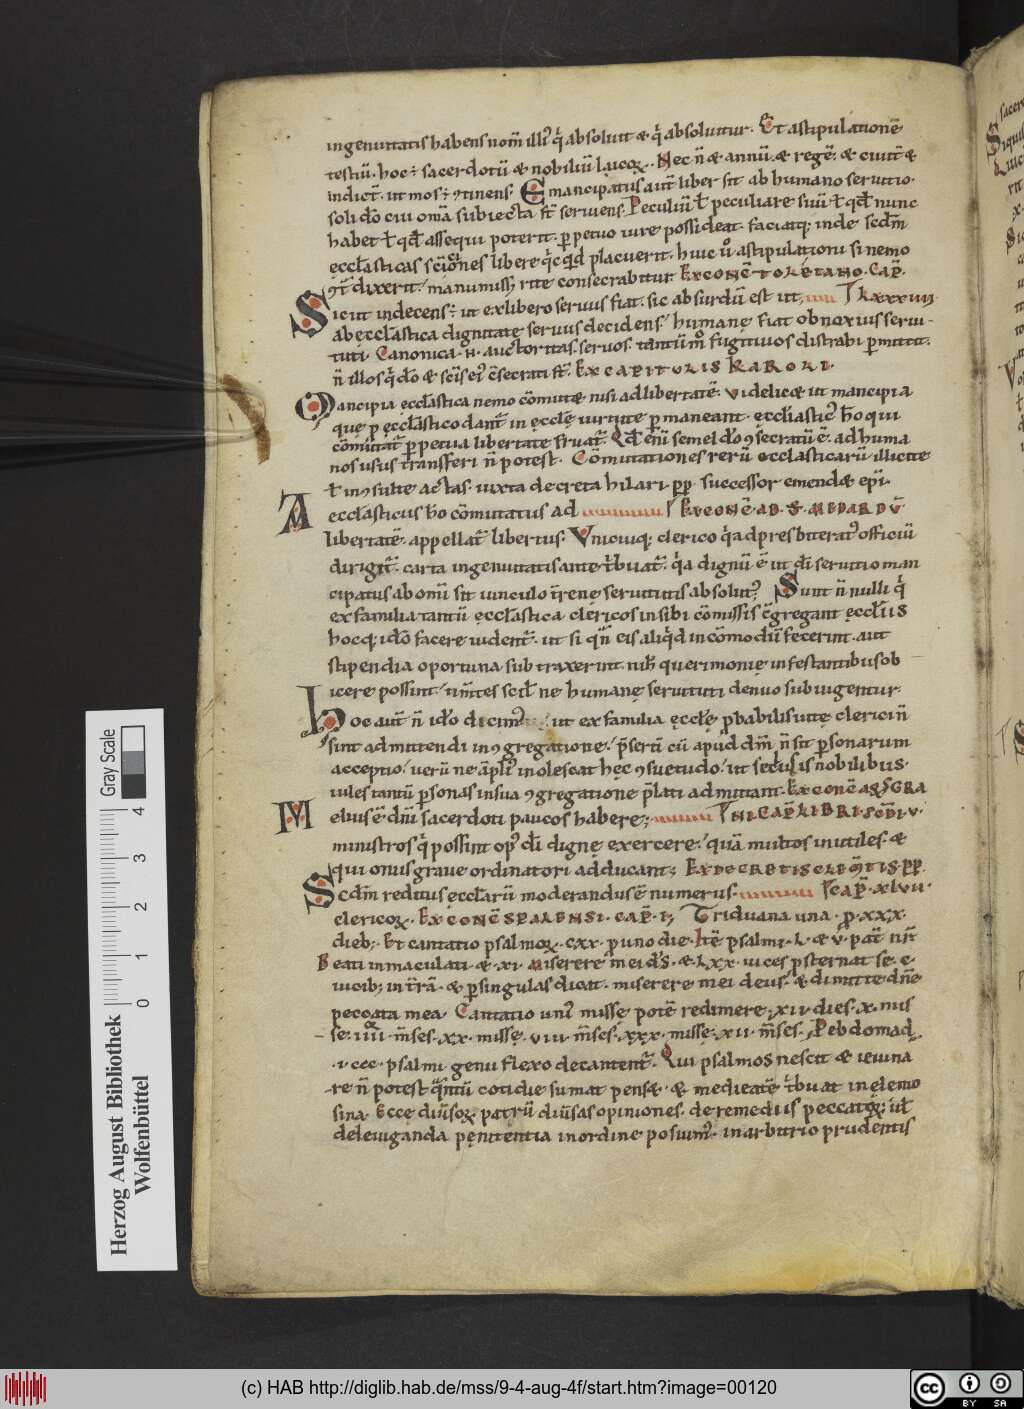 ingenuitatis habens nom̄ illi' q̇ absoluit & q̇ absoluitur. Et astipulationē
testiū. hoc ÷ sacerdotū & nobiliū laicoꝝ. Nec n̄ & annū. & regē. & ciuit̄ &
indict̄. ut mos ÷ ꝯtinens. Emancipatus aut̄ liber sit ab humano seruitio.
soli dō cui om̄a subiecta st̄ seruiens. Peculiū ł peculiare suū ł qd̄ nunc
habet ł qd̄ assequi poterit. ꝑpetuo iure possideat. faciatq; inde scdm̄
eccl̄asticas sc̄iōnes libere q̇cq̇d placuerit. huic ů astipulationi si nemo
ꝯt̄dixerit. manumissꝯ rite consecrabitur. EX CONC̄ TOLETANO. CAP̄.
Sicut indecens ÷ ut ex libero seruus fiat. sic absurdū est ut, LXXXIIII
ab ęccl̄astica dignitate seruus decidens. humanę fiat obnoxius serui
tuti. Canonica. n. auctoritas. seruos. tantūm̊ fugitiuos distrahi ꝑmittit.
n̄ illos q̇ dō & sc̄is ei' c̄secrati st̄. EX CAPITULIS KAROLI.
Mancipia ęccl̄astica nemo cōmutæ nisi ad libertatē. uidelicæ ut mancipia
quę ꝑ ęccl̄astico dant̄ in ęcclę̄ uirtute ꝑmaneant. ęccl̄iastic' h̄o qui
cōmutat̄ ꝑpetua libertate fruat̄. Qd̄ enī semel dō ꝯsecratū ē. ad huma
nos usus transferri n̄ potest. Cōmutationes rerū ecclasticarū illicite
ł inꝯsulte actas. iuxta decreta hilari. pp. successor emendæ ep̄i.
ecclasticus h̄o cōmutatus ad EX CONC̄ AD. S. MEDARDŪ
Alibertatē. appellat̄ libertus. Vnicuiq; clerico q̇ ad presbiterat' officiū
dirigit̄. carta ingenuitatis ante t̄buat̄. q̇a dignū ē ut dī seruitio man
cipatus ab omī sit uinculo t̄rene seruitutis absolut'. Sunt n̄nulli q̇
ex familia tantū ęccl̄astica clericos in sibi cōmissis c̄gregant ęccl̄iis
hocq; idō facere uident̄. ut si qn̄ eis aliq̇d incōmodi fecerint. aut
stipendia oportuna subtraxerint. nih̄ querimonię infestantibus ob
icere possint. tim̄tes scil̄ ne humanę seruituti denuo subiugentur.
Hoc aut̄ n̄ idō dicim' ut ex familia ęcclę̄ ꝓbabilis uitę clerici n̄
sint admittendi in ꝯgregatione. p̄sertī cū apud dm̄ n̄ sit ꝑsonarum
acceptio. uerū ne āpli' inolescat hęc ꝯsuetudo. ut seclusis nobilibus.
uiles tantū ꝑsonas in sua ꝯgregatione p̄lati admittant. EX CONC̄ AQSGRA
Melius ē dn̄i sacerdoti paucos habere; NI. CAP̄. LIBRI. SCDI. V.
ministros q̇ possint op' dī dignę exercere. quā multos inutiles. &
qui onus graue ordinatori adducant; EX DECRETIS CLEM̄TIS PP.
Scdm̄ reditus ęccl̄arū moderandus ē numerus. CAP̄. XLVII.
clericoꝝ. EX CONC̄ SPALENSI. CAP̄. I; Triduana una. ꝓ. XXX.
dieb;. Et cantatio psalmoꝝ. CXX. ꝓ uno die. Itē psalmi. L. & v̄. pat̄ nr̄.
Beati inmaculati. & XI. Miserere mei ds̄. & LXX. uices ꝓsternat se. e.
uicib; in t̄rā. & ꝑ singulas dicat. miserere mei deus. & dimitte dn̄e
peccata mea. Cantatio uni' missę potē redimere. XII. dies. X. mis
sę. IIII. m̄ses. XX. missę. VIII. m̄ses. XXX. missę. XII. m̄ses. P ebdomadꝯ
. I. CCC. psalmi genu flexo decantent̄. Qui psalmos nescit & ieiuna
re n̄ potest q̇ntū cotidie sumat pensæ. & medietatē t̄buat in ęlemo
sina. Ecce diūsoꝝ patrū diūsas opiniones. de remediis peccatoꝝ; uł
de leuiganda pęnitentia in ordine posuim'. in arbitrio prudentis
Herzog August Bibliothek
Wolfenbüttel
0 1 2 3 4
Gray Scale
(c) HAB http://diglib.hab.de/mss/9-4-aug-4f/start.htm?image=00120
CC BY SA